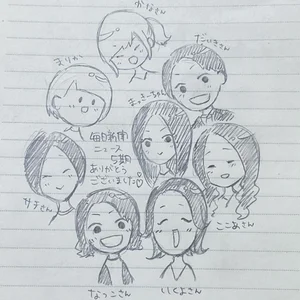 かなさん
だいきさん
まりか
まぁみーちゃん
毎日新聞
ニュース
5期
ありがとう
ございました♡
サキさん
ここあさん
なつこさん
いくよさん